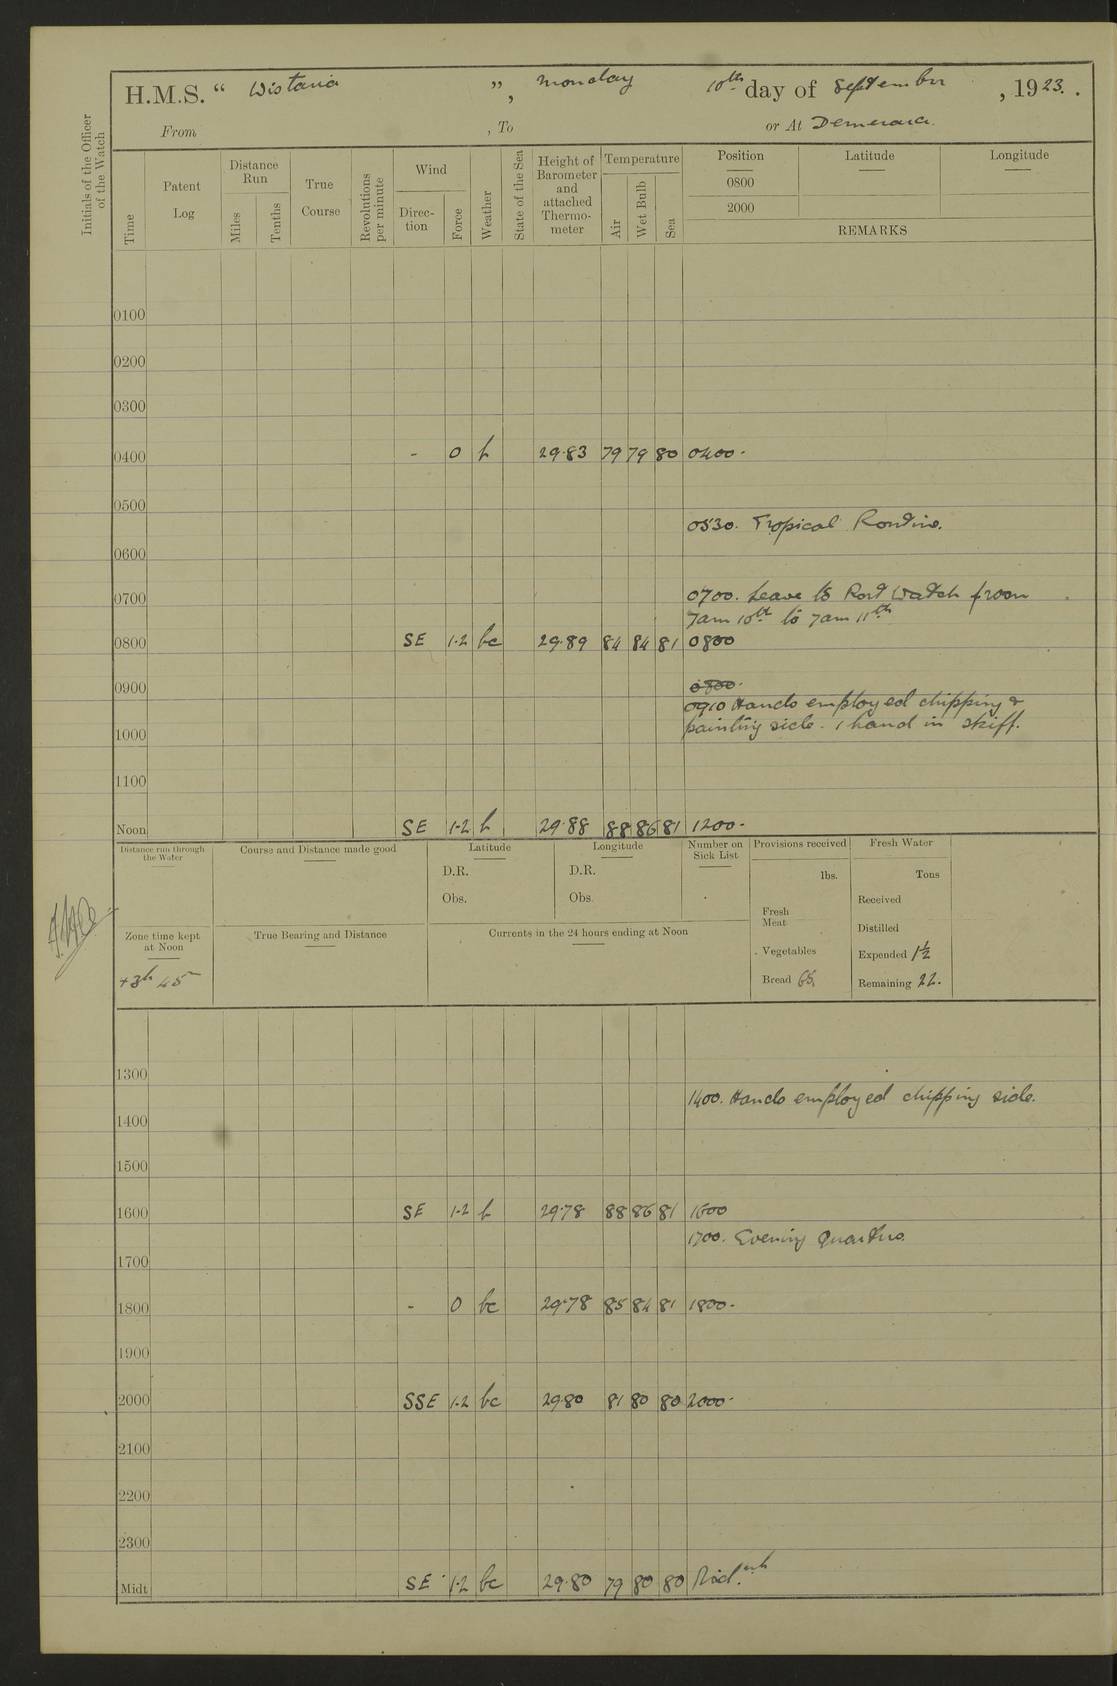 H.M.S. “ Wistaria ”, Monday 10th day of September, 1923.
From , To or At Demerara.
Initials of the Officer of the Watch
Time
Patent Log
Distance Run
Miles
Tenths
True Course
Revolutions per minute
Wind
Direction
Force
Weather
State of the Sea
Height of Barometer and attached Thermometer
Temperature
Air
Wet Bulb
Sea
Position Latitude Longitude
0800
2000
REMARKS
0100
0200
0300
0400 - 0 b 29.83 79 79 80 0400.
0500
0530. Tropical Routine.
0600
0700 0700. Leave to Port Watch from
7am 10th to 7am 11th
0800 SE 1.2 bc 29.89 84 84 81 0800
0900 0800.
0910 Hands employed chipping &
painting side. 1 hand in skiff.
1000
1100
Noon SE 1.2 b 29.88 88 86 81 1200.
Distance run through the Water
Course and Distance made good
Latitude
D.R.
Obs.
Longitude
D.R.
Obs.
Number on Sick List
Provisions received
lbs.
Fresh Meat
Vegetables
Bread 65
Fresh Water
Tons
Received
Distilled
Expended 1½
Remaining 22.
Zone time kept at Noon
+3h 45
True Bearing and Distance
Currents in the 24 hours ending at Noon
1300
1400. Hands employed chipping side.
1400
1500
1600 SE 1.2 b 29.78 88 86 81 1600
1700. Evening Quarters.
1700
1800 - 0 bc 29.78 85 84 81 1800.
1900
2000 SSE 1.2 bc 29.80 81 80 80 2000.
2100
2200
2300
Midt SE 1.2 bc 29.80 79 80 80 Mid.